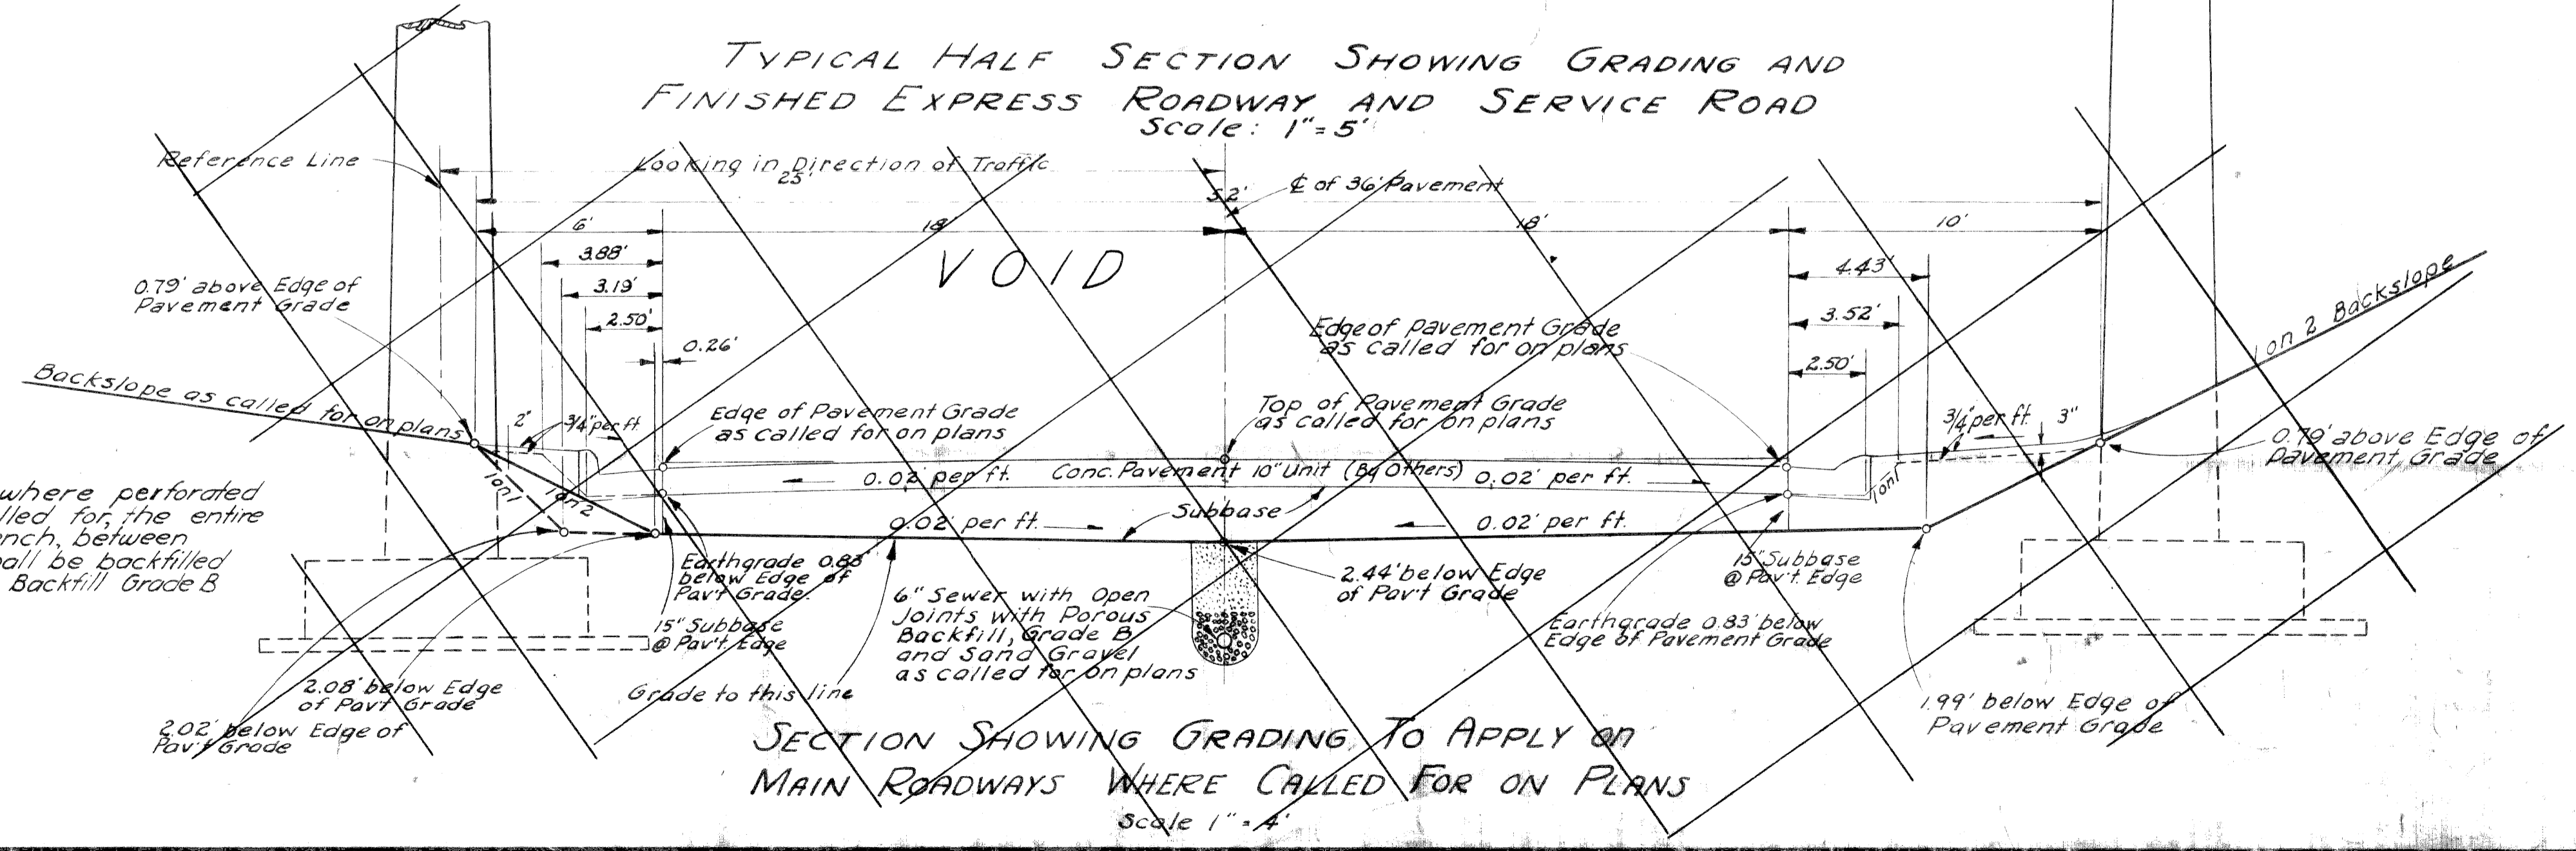 TYPICAL HALF SECTION SHOWING GRADING AND
FINISHED EXPRESS ROADWAY AND SERVICE ROAD
Scale: 1" = 5'
Reference Line
Looking in Direction of Traffic
25'
℄ of 36' Pavement
52'
6'
18'
18'
10'
VOID
3.88'
3.19'
2.50'
0.26'
4.43'
3.52'
2.50'
0.79' above Edge of
Pavement Grade
Edge of Pavement Grade
as called for on plans
1 on 2 Backslope
Backslope as called for on plans
2"
3/4" per ft.
Edge of Pavement Grade
as called for on plans
Top of Pavement Grade
as called for on plans
3/4" per ft.
3"
0.79' above Edge of
Pavement Grade
1 on 1
1 on 2
0.02' per ft.
Conc. Pavement 10" Unit (By Others)
0.02' per ft.
1 on 1
where perforated
lled for, the entire
ench, between
all be backfilled
Backfill Grade B
0.02' per ft.
Subbase
0.02' per ft.
Earthgrade 0.83'
below Edge of
Pav't Grade.
15" Subbase
@ Pav't. Edge
6" Sewer with Open
Joints with Porous
Backfill, Grade B
and Sand Gravel
as called for on plans
2.44' below Edge
of Pav't Grade
15" Subbase
@ Pav't. Edge
Earthgrade 0.83' below
Edge of Pavement Grade
2.08' below Edge
of Pav't Grade
Grade to this line
2.02' below Edge of
Pav't Grade
1.99' below Edge of
Pavement Grade
SECTION SHOWING GRADING TO APPLY on
MAIN ROADWAYS WHERE CALLED FOR ON PLANS
Scale 1" = 4'